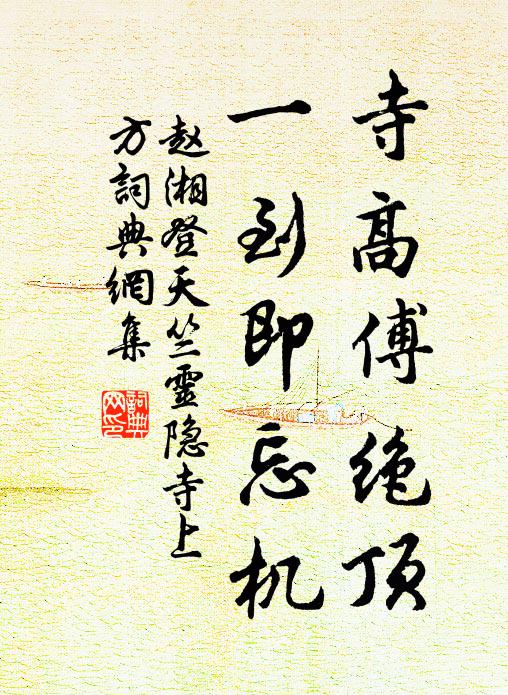 寺高傅绝顶
一到即忘机
赵湘登天竺靈隐寺上
方詞典網集
詞典
网印